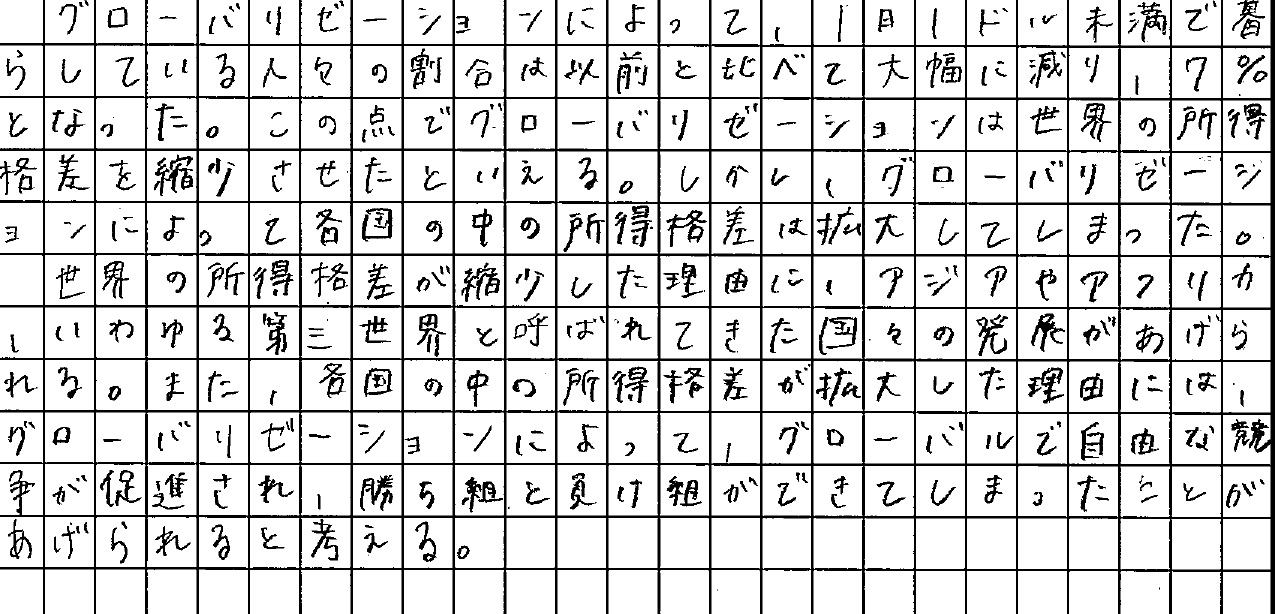 グローバリゼーションによって,1日1ドル未満で暮
らしている人々の割合は以前と比べて大幅に減り,7%
となった。この点でグローバリゼーションは世界の所得
格差を縮少させたといえる。しかし,グローバリゼーシ
ョンによって各国の中の所得格差は拡大してしまった。
世界の所得格差が縮少した理由に,アジアやアフリカ
,いわゆる第三世界と呼ばれてきた国々の発展があげら
れる。また,各国の中の所得格差が拡大した理由には,
グローバリゼーションによって,グローバルで自由な競
争が促進され,勝ち組と負け組ができてしまったことが
あげられると考える。